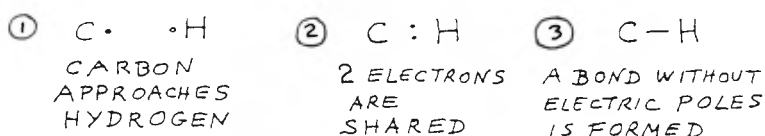 ① C· ·H
CARBON
APPROACHES
HYDROGEN
② C : H
2 ELECTRONS
ARE
SHARED
③ C—H
A BOND WITHOUT
ELECTRIC POLES
IS FORMED